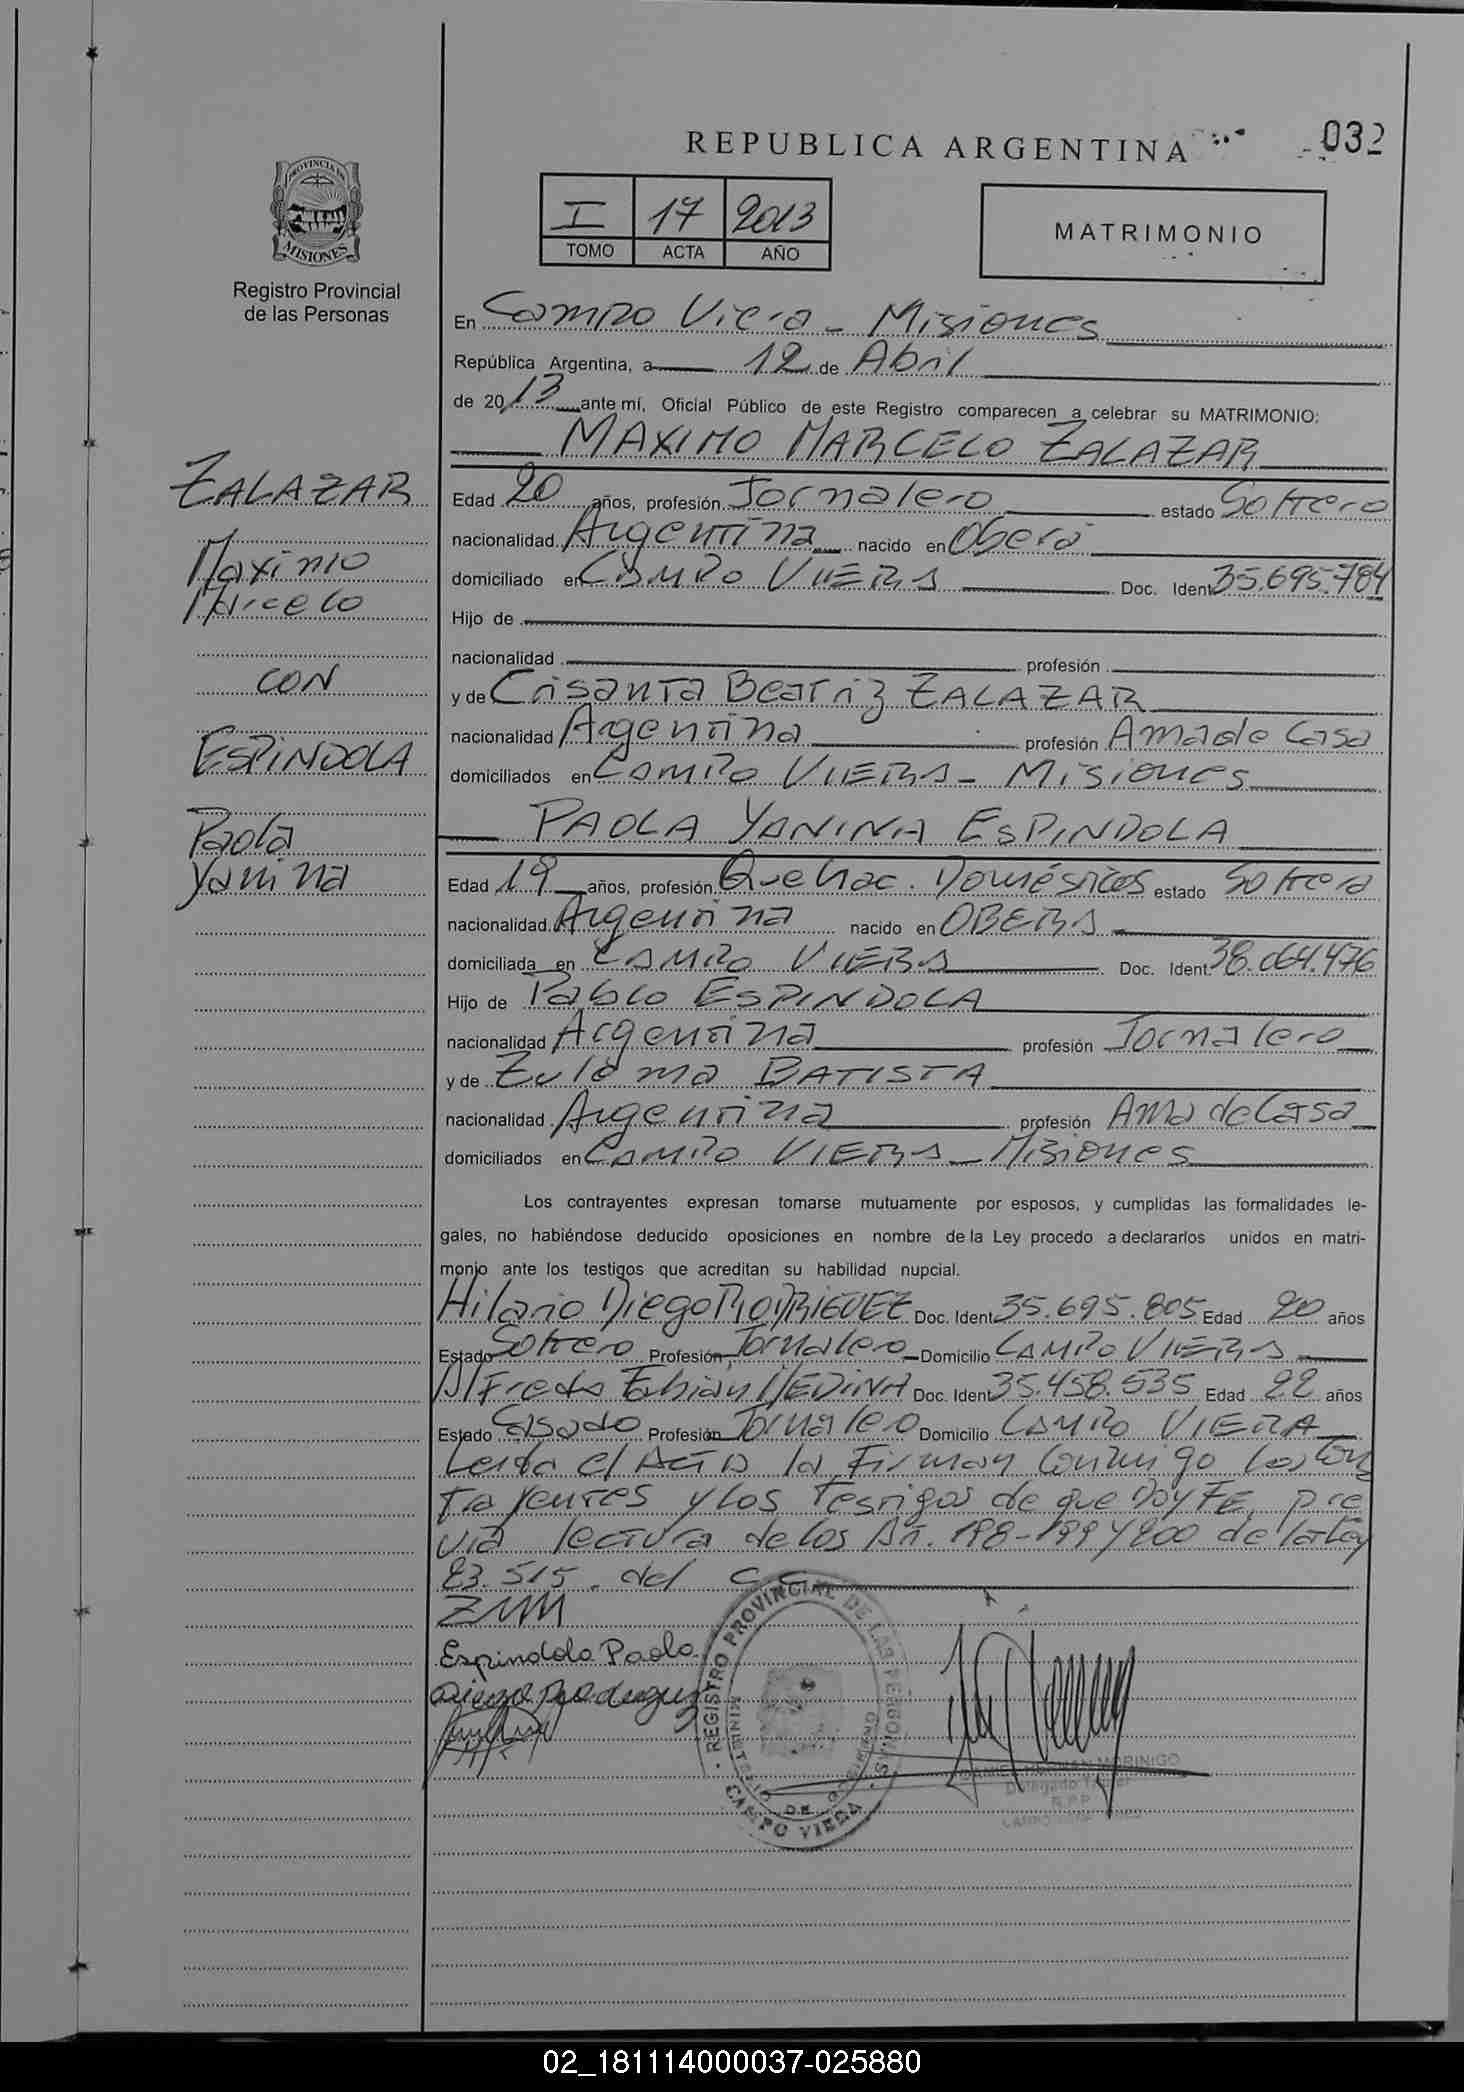 REPUBLICA ARGENTINA
032
PROVINCIA DE
MISIONES
Registro Provincial
de las Personas
I 17 2013
TOMO ACTA AÑO
MATRIMONIO
En Campo Viera - Misiones
República Argentina, a 12 de Abril
de 2013 ante mí, Oficial Público de este Registro comparecen a celebrar su MATRIMONIO:
MAXIMO MARCELO ZALAZAR
Edad 20 años, profesión Jornalero estado Soltero
nacionalidad Argentina nacido en Oberá
domiciliado en CAMPO VIERA Doc. Ident 35.695.784
Hijo de
nacionalidad profesión
y de Crisanta Beatriz ZALAZAR
nacionalidad Argentina profesión Ama de Casa
domiciliados en CAMPO VIERA - Misiones
PAOLA YANINA ESPINDOLA
Edad 19 años, profesión Quehac. Domésticos estado Soltera
nacionalidad Argentina nacido en OBERA
domiciliada en CAMPO VIERA Doc. Ident 38.064.476
Hijo de Pablo ESPINDOLA
nacionalidad Argentina profesión Jornalero
y de Zulema BATISTA
nacionalidad Argentina profesión Ama de Casa
domiciliados en CAMPO VIERA - Misiones
Los contrayentes expresan tomarse mutuamente por esposos, y cumplidas las formalidades le-
gales, no habiéndose deducido oposiciones en nombre de la Ley procedo a declararlos unidos en matri-
monio ante los testigos que acreditan su habilidad nupcial.
Hilario Diego RODRIGUEZ Doc. Ident 35.695.805 Edad 20 años
Estado Soltero Profesión Jornalero Domicilio CAMPO VIERA
Alfredo Fabián MEDINA Doc. Ident 35.458.535 Edad 22 años
Estado Casado Profesión Jornalero Domicilio CAMPO VIERA
Leida el Acta la Firman Conmigo los Con
trayentes y los Testigos de que Doy FE, pre
via lectura de los Art. 198-199 y 200 de la Ley
23.515. del C.C.
ZMM
Espindola Paola
Diego Rodriguez
REGISTRO PROVINCIAL DE LAS PERSONAS
MINISTERIO DE GOBIERNO
CAMPO VIERA
MORINIGO
Delegado
R.P.P.
ZALAZAR
Maximo
Marcelo
CON
ESPINDOLA
Paola
Yanina
02_181114000037-025880